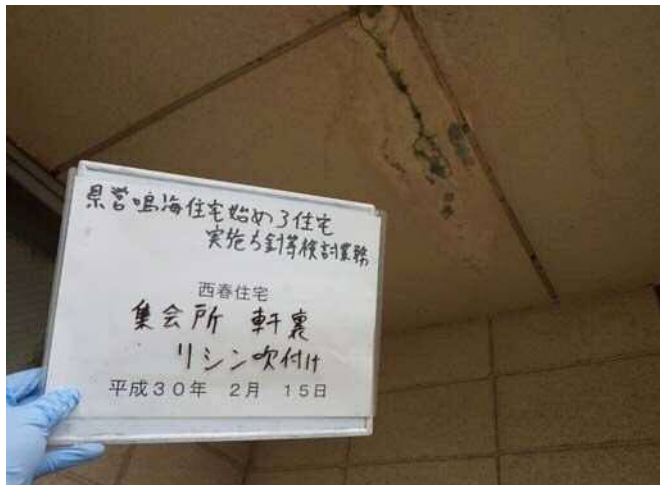 県営鳴海住宅始め3住宅
実施方針等検討業務
西春住宅
集会所 軒裏
リシン吹付け
平成30年 2月 15日